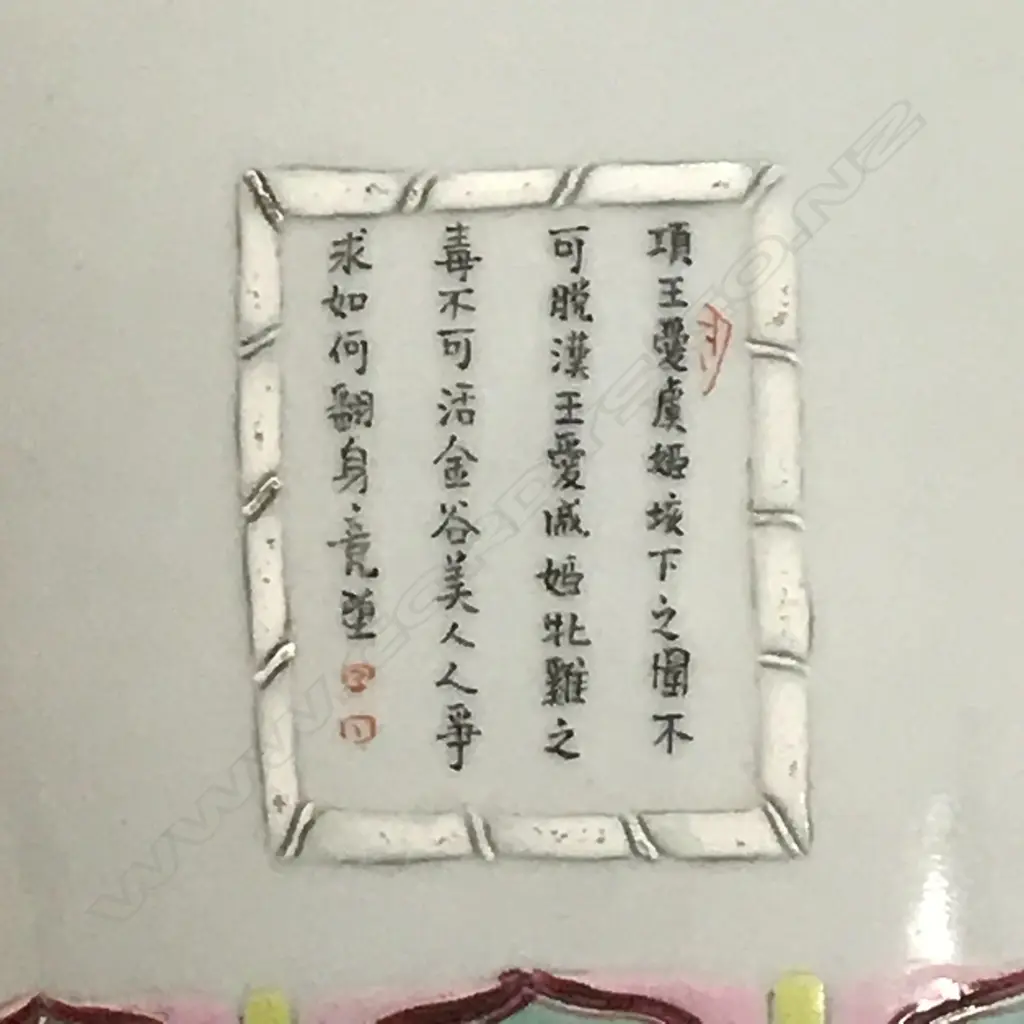 項王愛虞姬垓下之圍不
可脫漢王愛戚姬牝雞之
毒不可活金谷美人人爭
求如何翻身竟墮